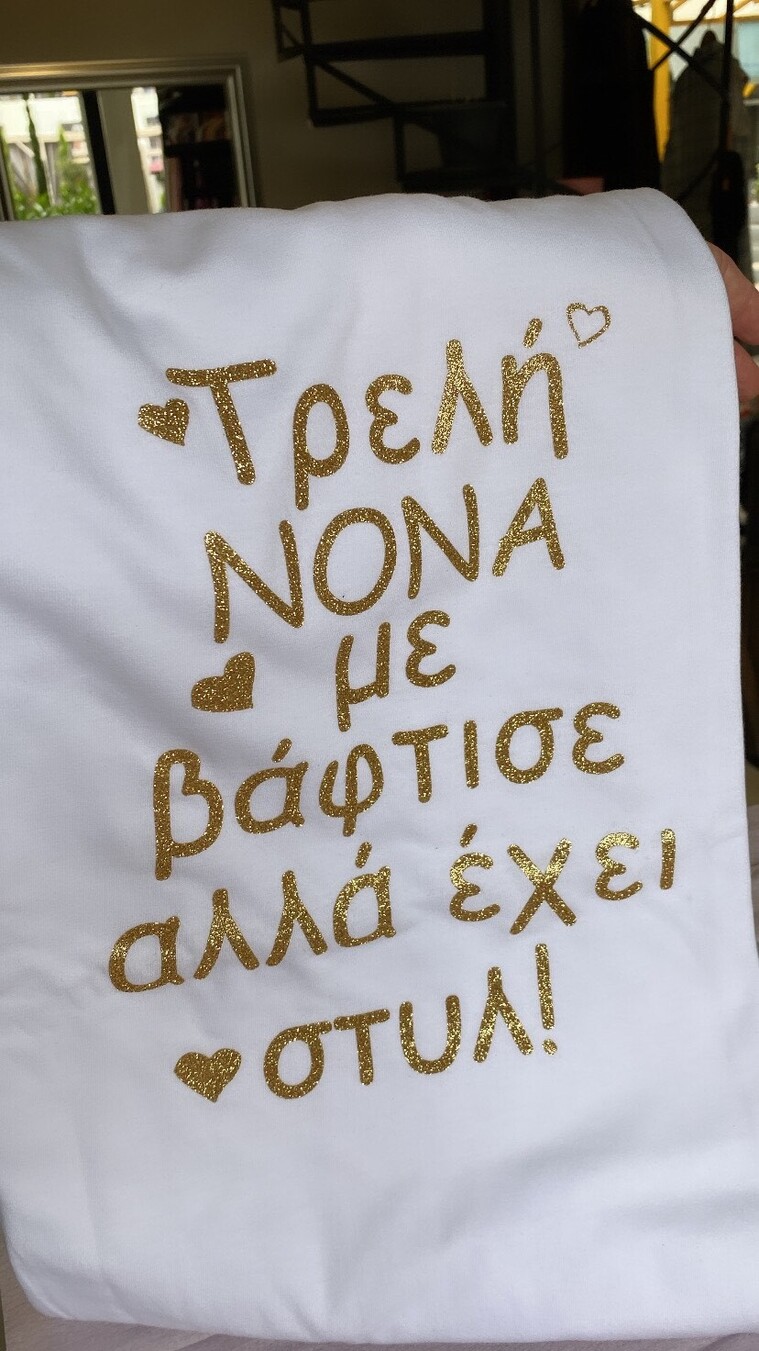 Τρελή
ΝΟΝΑ
με
βάφτισε
αλλά έχει
στυλ!